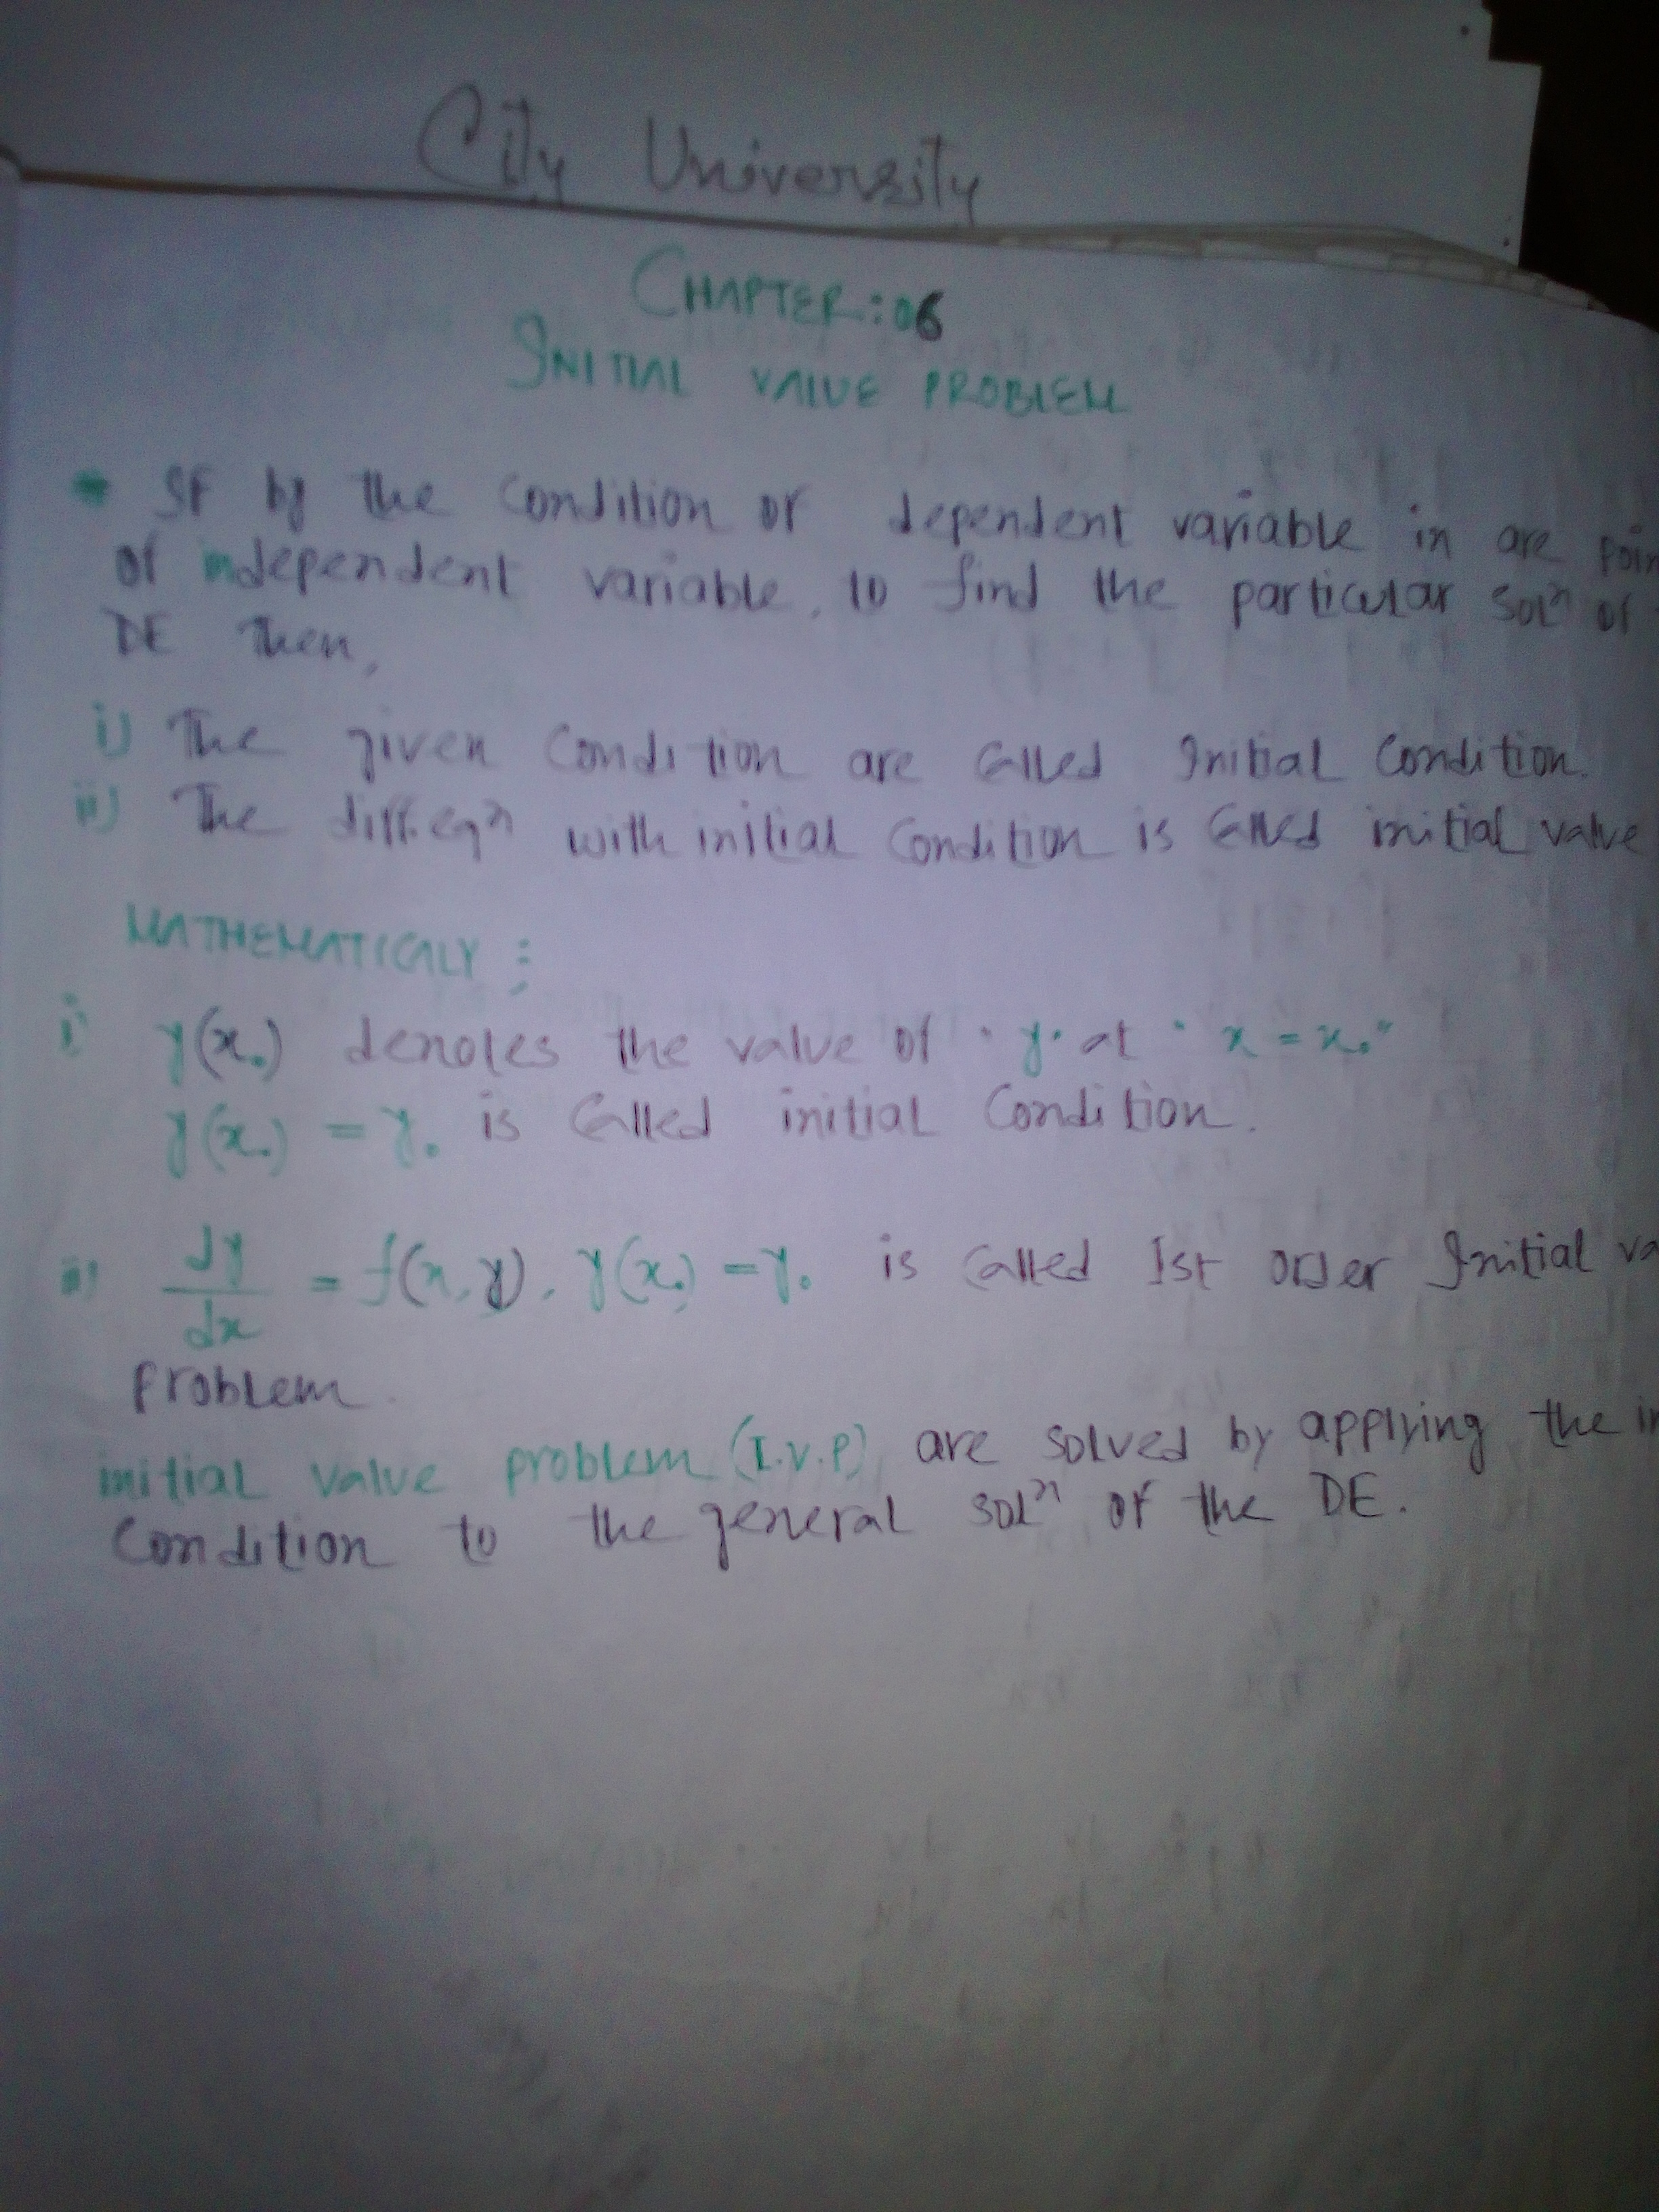 City University
CHAPTER: 06
INITIAL VALUE PROBLEM
If by the condition of dependent variable in are poin
of independent variable, to find the particular solⁿ of
DE Then,
i) The given condition are called Initial Condition.
ii) The diff. eqⁿ with initial condition is called initial value
MATHEMATICALY :
i) y(x₀) denotes the value of "y" at "x = x₀"
y(x₀) = y₀ is called initial condition.
ii) dy/dx = f(x, y), y(x₀) = y₀ is called 1st order Initial va
Problem.
initial value problem (I.V.P) are solved by applying the in
Condition to the general solⁿ of the DE.